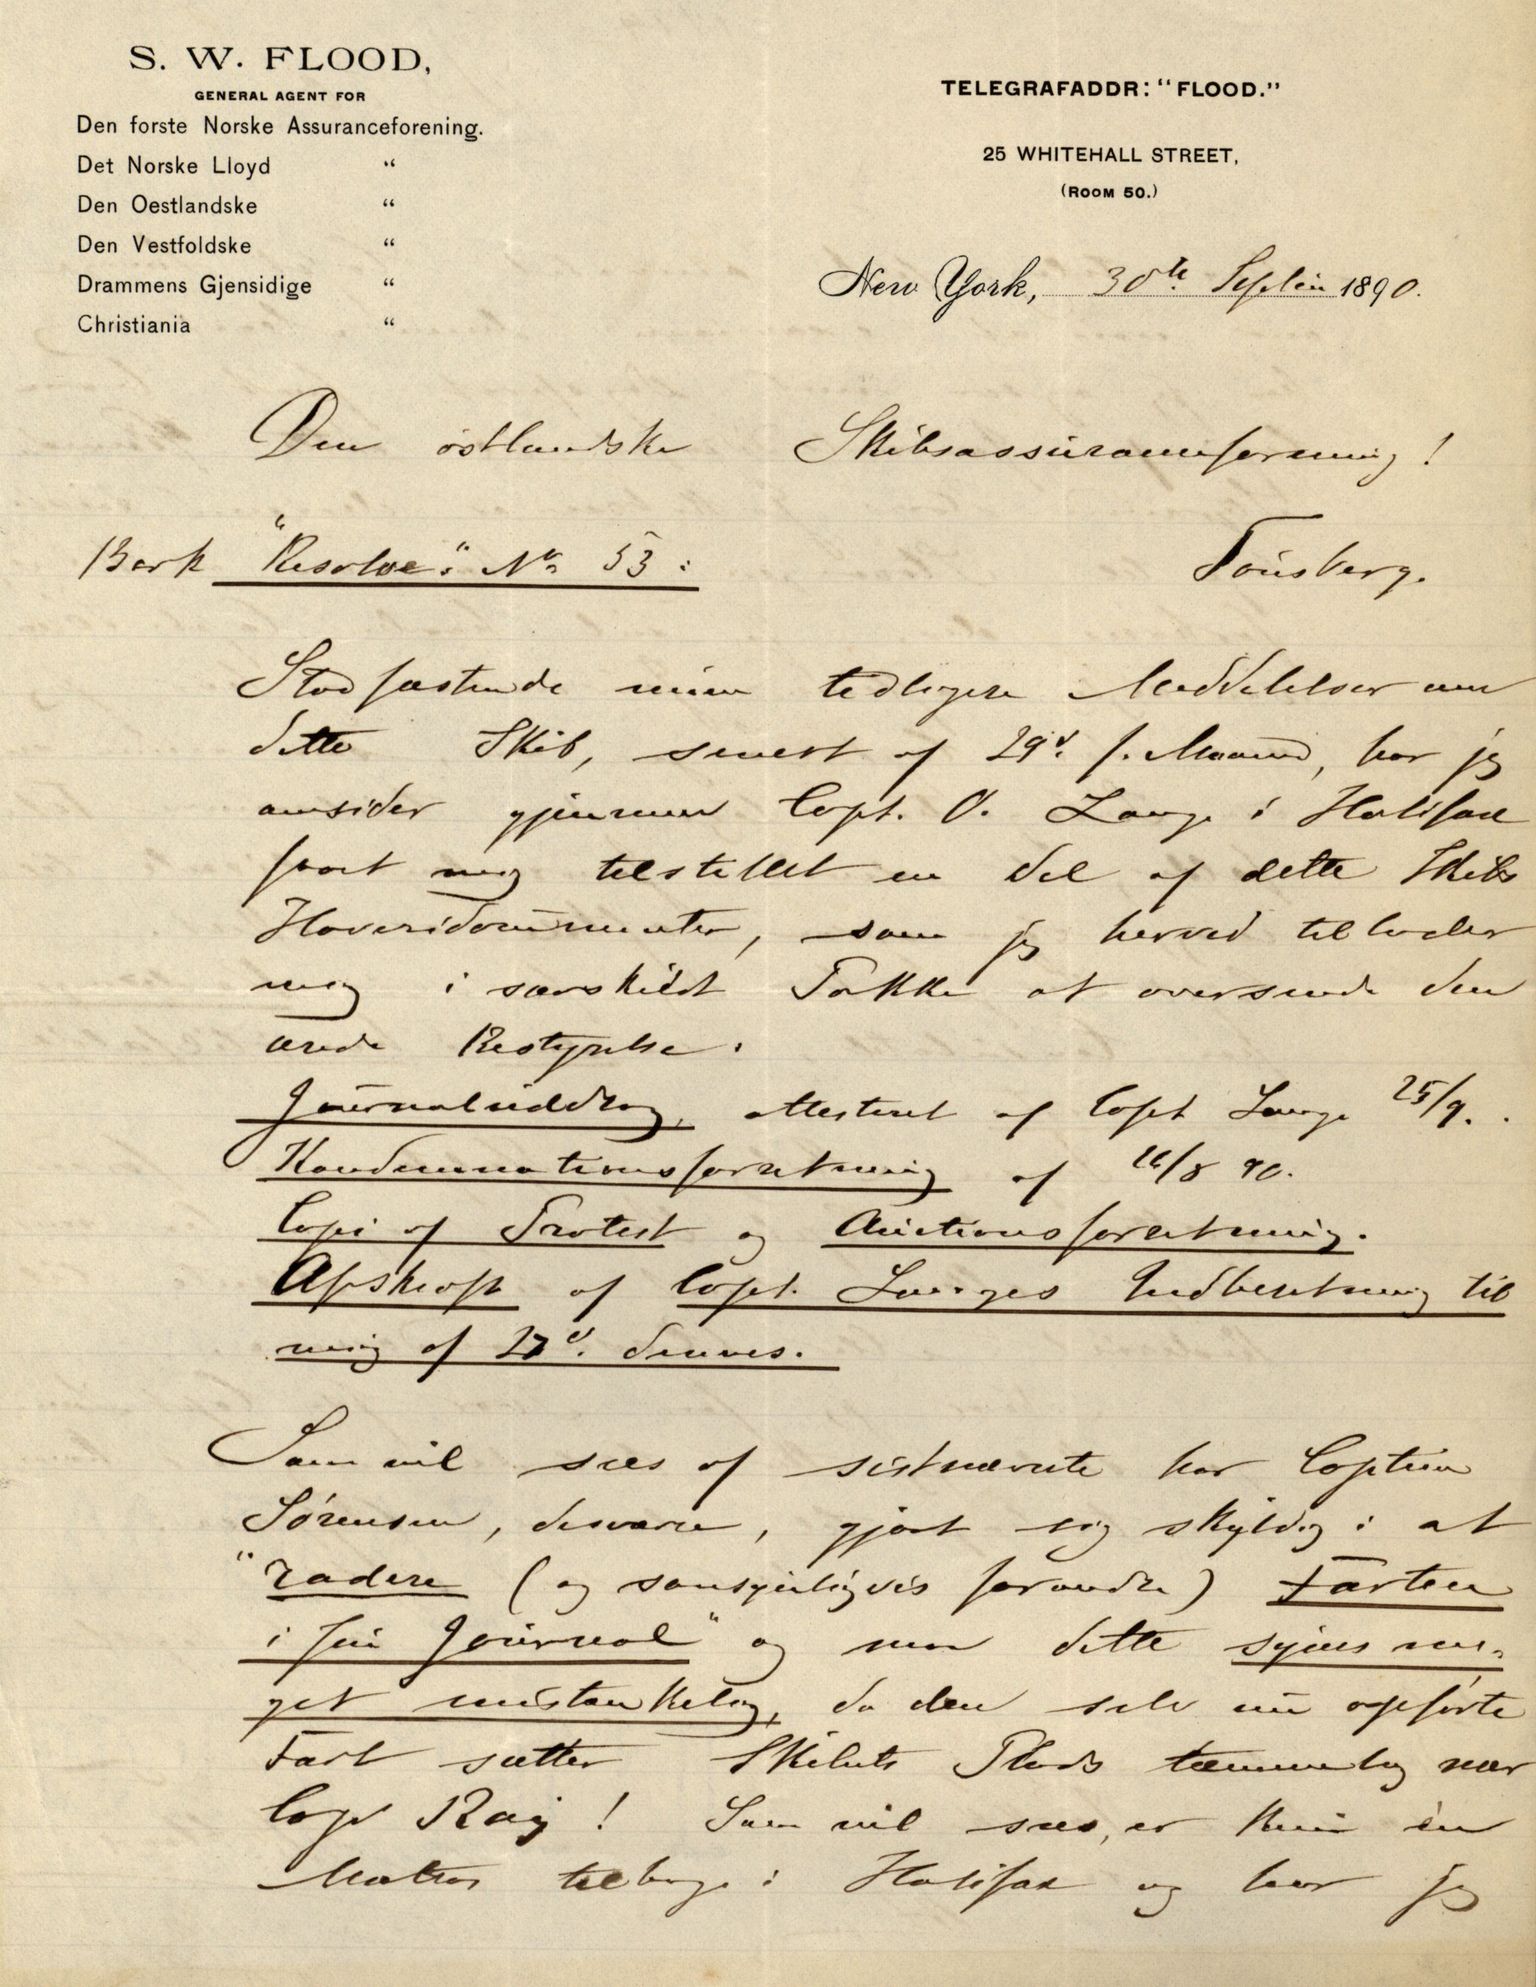 S. W. FLOOD,
GENERAL AGENT FOR
Den forste Norske Assuranceforening.
Det Norske Lloyd "
Den Oestlandske "
Den Vestfoldske "
Drammens Gjensidige "
Christiania "
TELEGRAFADDR: "FLOOD."
25 WHITEHALL STREET,
(ROOM 50.)
New York, 30th Septbr 1890.
Den östlandske Skibsassuranceforening!
Bark "Resolve" No 53: Tönsberg.
Stadfæstende mine tidligere Meddelelser om
dette Skib, senest af 29d. f. Maaned, har jeg
omsider gjennem Capt. O. Lange i Halifax
faaet mig tilstillet en Del af dette Skibs
Havaridocumenter, som jeg herved tillader
mig i særskildt Pakke at oversende den
ærede Bestyrelse:
Journaluddrag, attesteret af Capt Lange 25/9.
Kondemnationsforretning af /8 90.
Copi af Protest og Auctionsforretning.
Afskrift af Capt. Langes Indberetning til
mig af 27d. dennes.
Som vil sees af sistnævnte har Captein
Sørensen, desværre, gjort sig skyldig i at
"radere (og sansynligvis forandre) Farten
i sin Journal" og man dette synes me-
get mistænkelig, da den selv nu opförte
Fart sætter Skibets Plads temmelig nær
Cape Ray! Som vil sees, er kun èn
Matros tilbage i Halifax og har jeg